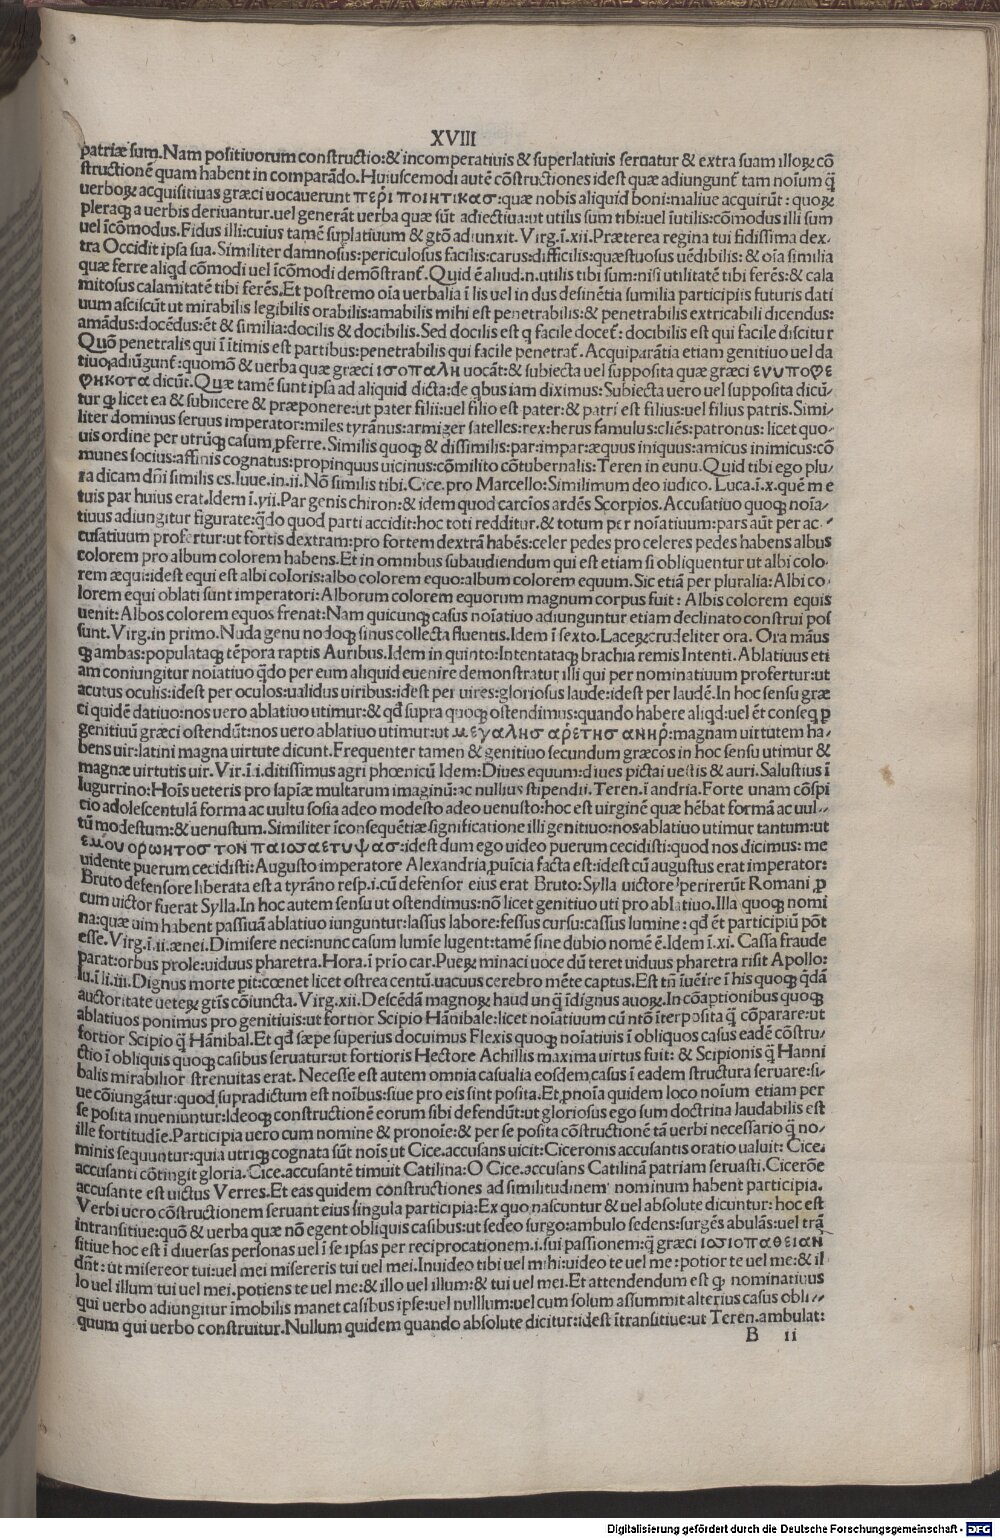 XVIII
patriæ sum.Nam positiuorum constructio:& incomperatiuis & superlatiuis seruatur & extra suam illoꝝ cõ
structionẽ quam habent in comparãdo.Huiuscemodi autẽ cõstructiones idest quæ adiungunt̃ tam noĩum q̃
uerboꝝ acquisitiuas græci uocauerunt περι ποιητικασ:quæ nobis aliquid boni:maliue acquirũt : quoꝝ
pleraqꝫ a uerbis deriuantur.uel generãt uerba quæ sũt adiectiua:ut utilis sum tibi:uel ĩutilis:cõmodus illi sum
uel ĩcõmodus.Fidus illi:cuius tamẽ suplatiuum & gtõ adiunxit. Virg.ĩ.xii.Præterea regina tui fidissima dex-
tra Occidit ipsa sua. Similiter damnosus:periculosus facilis:carus:difficilis:quæstuosus uẽdibilis: & oĩa similia
quæ ferre aliqd cõmodi uel ĩcõmodi demõstrant̃.Quid ẽ aliud.n.utilis tibi sum:nisi utilitatẽ tibi ferẽs:& cala
mitosus calamitatẽ tibi ferẽs.Et postremo oĩa uerbalia ĩ lis uel in dus desinẽtia sumilia participiis futuris dati
uum asciscũt ut mirabilis legibilis orabilis:amabilis mihi est penetrabilis:& penetrabilis extricabili dicendus:
amãdus:docẽdus:ẽt & similia:docilis & docibilis. Sed docilis est q facile docet̃: docibilis est qui facile discitur
Quõ penetralis qui ĩ ĩtimis est partibus:penetrabilis qui facile penetrat̃ .Acquiparãtia etiam genitiuo uel da
tiuo,adiũgunt̃:quomõ & uerba quæ græci ισοπαλη uocãt:& subiecta uel supposita quæ græci ενυποφε
φηκοτα dicũt.Quæ tamẽ sunt ipsa ad aliquid dicta:de qbus iam diximus:Subiecta uero uel supposita dicũ-
tur qꝫ licet ea & subiicere & præponere:ut pater filii:uel filio est pater:& patri est filius:uel filius patris. Simi-
liter dominus seruus imperator:miles tyrãnus:armiger satelles:rex:herus famulus:cliẽs:patronus: licet quo-
uis ordine per utrũqꝫ casum,pferre.Similis quoqꝫ & dissimilis:par:impar:æquus iniquus:amicus inimicus:cõ
munes socius:affinis cognatus:propinquus uicinus:cõmilito cõtubernalis:Teren in eunu.Quid tibi ego plu-
ra dicam dñi similis es.Iuue.in.ii.Nõ similis tibi.Cice.pro Marcello:Similimum deo iudico. Luca.ĩ.x.quẽ me
tuis par huius erat.Idem ĩ.yii.Par genis chiron:& idem quod carcĩos ardẽs Scorpios.Accusatiuo quoqꝫ noĩa-
tiuus adiungitur figurate:q̃do quod parti accidit:hoc toti redditur.& totum per noĩatiuum:pars aũt per ac-
cusatiuum profertur:ut fortis dextram:pro fortem dextrã habẽs:celer pedes pro celeres pedes habens albus
colorem pro album colorem habens.Et in omnibus subaudiendum qui est etiam si obliquentur ut albi colo-
rem æqui:idest equi est albi coloris:albo colorem equo:album colorem equum. Sic etiã per pluralia:Albi co-
lorem equi oblati sunt imperatori:Alborum colorem equorum magnum corpus fuit : Albis colorem equis
uenit:Albos colorem equos frenat:Nam quicunqꝫ casus noĩatiuo adiunguntur etiam declinato construi pos
sunt.Virg.in primo.Nuda genu nodoqꝫ sinus collecta fluentis.Idem ĩ sexto.Laceꝝ crudeliter ora. Ora mãus
qꝫ ambas:populataqꝫ tẽpora raptis Auribus.Idem in quinto:Intentataqꝫ brachia remis Intenti.Ablatiuus eti
am coniungitur noĩatiuo q̃do per eum aliquid euenire demonstratur illi qui per nominatiuum profertur:ut
acutus oculis:idest per oculos:ualidus uiribus:idest per uires:gloriosus laude:idest per laudẽ.In hoc sensu græ
ci quidẽ datiuo:nos uero ablatiuo utimur:& qd̃ supra quoqꝫ ostendimus:quando habere aliqd:uel ẽt conseq̃ p
genitiuũ græci ostendũt:nos uero ablatiuo utimur:ut μεγαλησ αρετησ ανηρ:magnam uirtutem ha-
bens uir:latini magna uirtute dicunt.Frequenter tamen & genitiuo secundum græcos in hoc sensu utimur &
magnæ uirtutis uir. Vir.ĩ.i.ditissimus agri phœnicũ Idem:Diues equum:diues pictai uestis & auri. Salustius ĩ
Iugurrino:Hoĩs ueteris pro sapiæ multarum imaginũ:ac nullius stipendii. Teren.ĩ andria.Forte unam cõspi
cio adolescentulã forma ac uultu sosia adeo modesto adeo uenusto:hoc est uirginẽ quæ hẽbat formã ac uul-
tũ modestum:& uenustum.Similiter ĩconsequẽtiæ significatione illi genitiuo:nos ablatiuo utimur tantum:ut
εμου ορωητοσ τον παιοσαετυψασ:idest dum ego uideo puerum cecidisti:quod nos dicimus: me
uidente puerum cecidisti:Augusto imperatore Alexandria,puĩcia facta est:idest cũ augustus erat imperator:
Bruto defensore liberata est a tyrãno resp.i.cũ defensor eius erat Bruto:Sylla uictore perirerũt Romani p
cum uictor fuerat Sylla.In hoc autem sensu ut ostendimus:nõ licet genitiuo uti pro ablatiuo.Illa quoqꝫ nomi
na:quæ uim habent passiuã ablatiuo iunguntur:lassus labore:fessus cursu:cassus lumine : qd̃ ẽt participiũ põt
esse. Virg.ĩ.ii.ænei.Dimisere neci:nunc casum lumĩe lugent:tamẽ sine dubio nomẽ ẽ.Idem ĩ.xi. Cassa fraude
parat:orbus prole:uiduus pharetra.Hora.ĩ prĩo car.Pueꝝ minaci uoce dũ teret uiduus pharetra risit Apollo:
Iu.ĩ li.iii.Dignus morte pit:cœnet licet ostrea centũ.uacuus cerebro mẽte captus.Est tñ ĩuẽire ĩ his quoqꝫ q̃dã
auctoritate ueteꝝ gtĩs cõiuncta. Virg.xii.Descẽdã magnoꝝ haud unq̃ ĩdignus auoꝝ.In cõaptionibus quoqꝫ
ablatiuos ponimus pro genitiuis:ut fortior Scipio Hãnibale:licet noĩatiuum cũ ntõ ĩterposita q̃ cõparare:ut
fortior Scipio q̃ Hãnibal.Et qd̃ sæpe superius docuimus Flexis quoqꝫ noĩatiuis ĩ obliquos casus eadẽ cõstru-
ctio ĩ obliquis quoqꝫ casibus seruatur:ut fortioris Hectore Achillis maxima uirtus fuit: & Scipionis q̃ Hanni
balis mirabilior strenuitas erat. Necesse est autem omnia casualia eosdem,casus ĩ eadem structura seruare:si-
ue cõiungãtur:quod supradictum est noĩbus:siue pro eis sint posita.Et,pnoĩa quidem loco noĩum etiam per
se posita inueniuntur:Ideoqꝫ constructionẽ eorum sibi defendũt:ut gloriosus ego sum doctrina laudabilis est
ille fortitudĩe.Participia uero cum nomine & pronoĩe:& per se posita cõstructionẽ tã uerbi necessario q̃ no-
minis sequuntur:quia utriqꝫ cognata sũt noĩs ut Cice.accusans uicit:Ciceronis accusantis oratio ualuit: Cice.
accusanti cõtingit gloria.Cice.accusantẽ timuit Catilina:O Cice.accusans Catilinã patriam seruasti.Cicerõe
accusante est uictus Verres.Et eas quidem constructiones ad similitudinem nominum habent participia.
Verbi uero cõstructionem seruant eius singula participia:Ex quo nascuntur & uel absolute dicuntur: hoc est
intransitiue:quõ & uerba quæ nõ egent obliquis casibus:ut sedeo surgo:ambulo sedens:surgẽs abulãs:uel trã
sitiue hoc est ĩ diuersas personas uel ĩ se ipsas per reciprocationem.i.sui passionem:q̃ græci ιοσιοπαθειαν
dñt : ut misereor tui:uel mei misereris tui uel mei.Inuideo tibi uel mihi:uideo te uel me :potior te uel me:& il
lo uel illum tui uel mei.potiens te uel me:& illo uel illum:& tui uel mei.Et attendendum est qꝫ nominatiuus
qui uerbo adiungitur ĩmobilis manet casibus ipse:uel nulllum:uel cum solum assummit alterius casus obli-
quum qui uerbo construitur.Nullum quidem quando absolute dicitur:idest ĩtransitiue:ut Teren.ambulat:
B ii
Digitalisierung gefördert durch die Deutsche Forschungsgemeinschaft - DFG